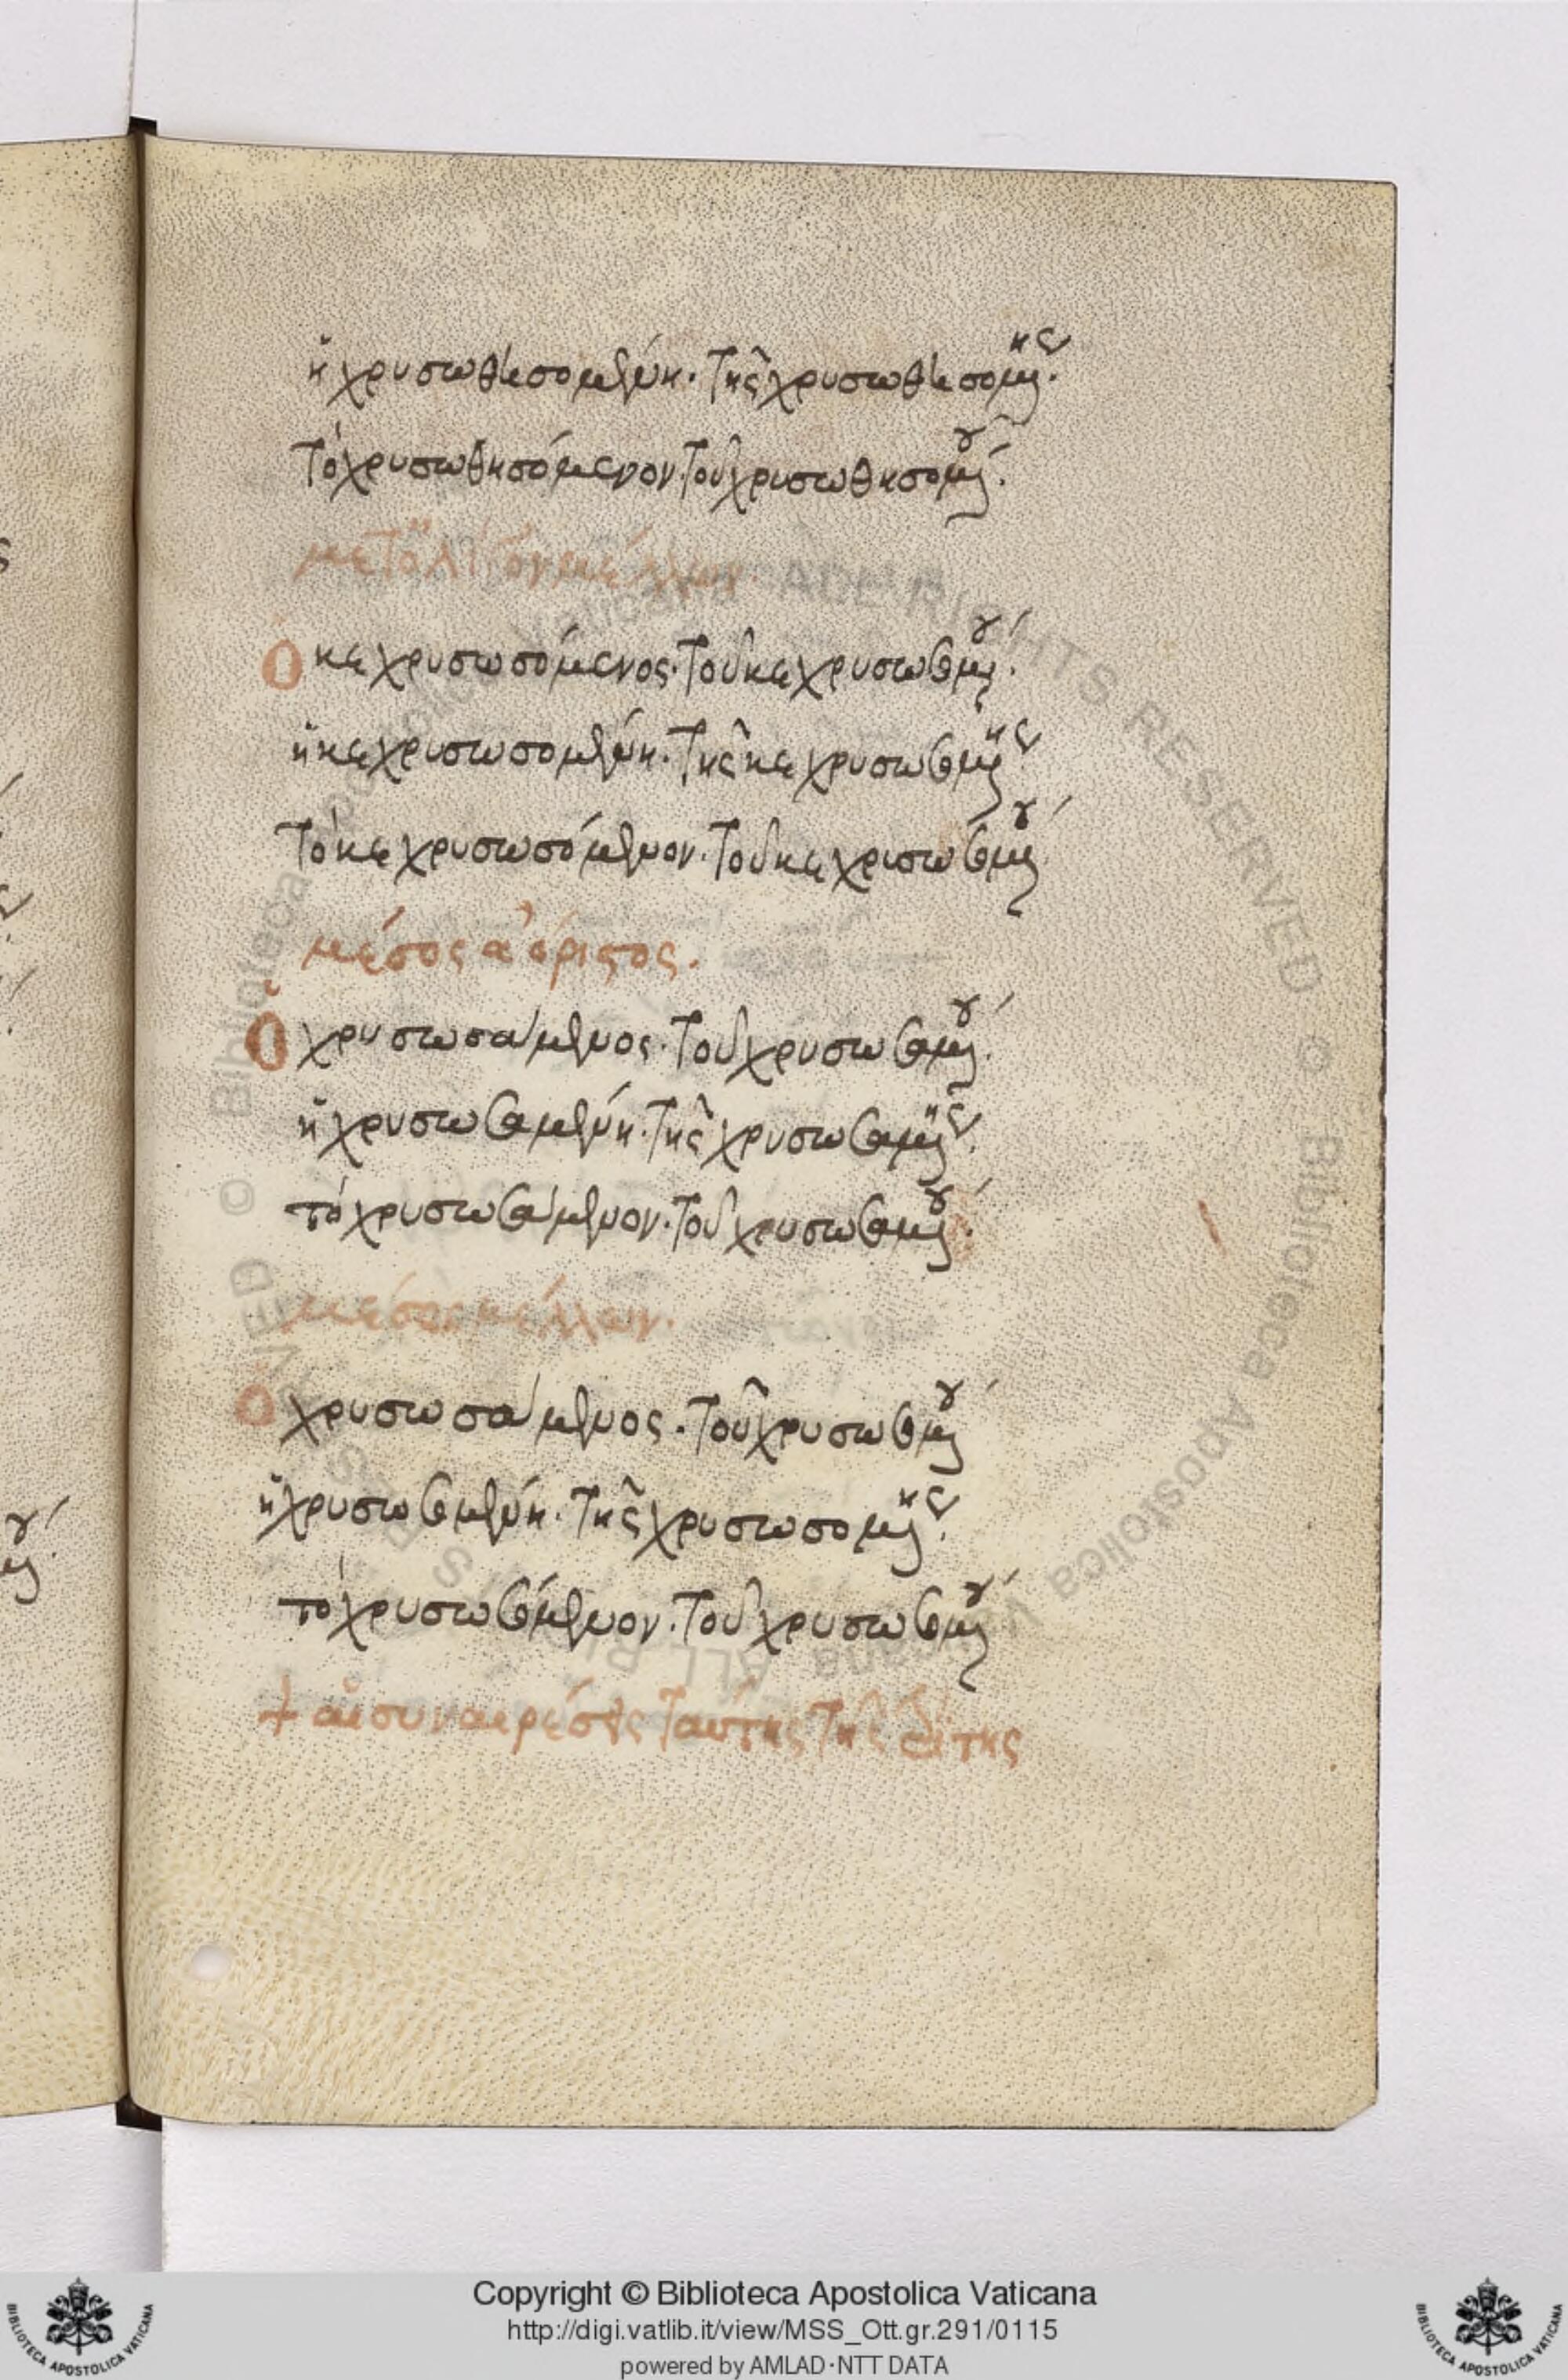 ἡ χρυσωθησομένη· τῆς χρυσωθησομένης·
τὸ χρυσωθησόμενον· τοῦ χρυσωθησομένου·
μετ' ὀλίγον μέλλων·
Ο κεχρυσωσόμενος· τοῦ κεχρυσωσομένου·
ἡ κεχρυσωσομένη· τῆς κεχρυσωσομένης
τὸ κεχρυσωσόμενον· τοῦ κεχρισωσομένου
μέσος ἀόριστος·
Ὁ χρυσωσάμενος· τοῦ χρυσωσαμένου·
ἡ χρυσωσαμένη· τῆς χρυσωσαμένης·
τὸ χρυσωσάμενον· τοῦ χρυσωσαμένου·
μέσος μέλλων·
Ο χρυσωσάμενος· τοῦ χρυσωσομένου
ἡ χρυσωσομένη· τῆς χρυσωσομένης·
τὸ χρυσωσόμενον· τοῦ χρυσωσομένου
+ αἱ συναιρέσεις ταύτης τῆς
Copyright © Biblioteca Apostolica Vaticana
http://digi.vatlib.it/view/MSS_Ott.gr.291/0115
powered by AMLAD·NTT DATA
BIBLIOTECA APOSTOLICA VATICANA
BIBLIOTECA APOSTOLICA VATICANA